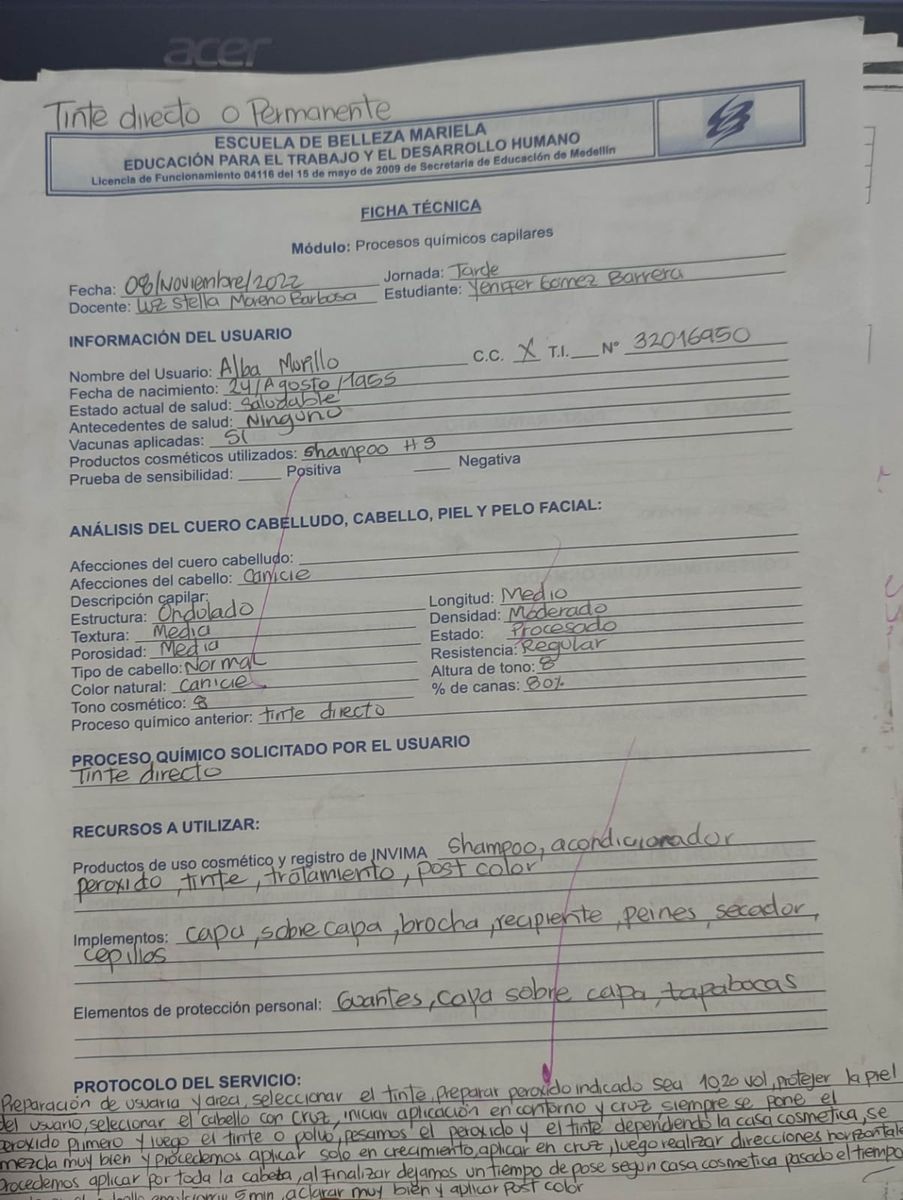 acer
Tinte directo o Permanente
ESCUELA DE BELLEZA MARIELA
EDUCACIÓN PARA EL TRABAJO Y EL DESARROLLO HUMANO
Licencia de Funcionamiento 04116 del 15 de mayo de 2009 de Secretaria de Educación de Medellín
FICHA TÉCNICA
Módulo: Procesos químicos capilares
Fecha: 08/Noviembre/2022 Jornada: Tarde
Docente: Luz Stella Moreno Barbosa Estudiante: Yenifer Gomez Barrera
INFORMACIÓN DEL USUARIO
Nombre del Usuario: Alba Murillo C.C. X T.I. Nº 32016950
Fecha de nacimiento: 24/Agosto/1955
Estado actual de salud: Saludable
Antecedentes de salud: Ninguno
Vacunas aplicadas: Si
Productos cosméticos utilizados: shampoo H9
Prueba de sensibilidad: Positiva Negativa
ANÁLISIS DEL CUERO CABELLUDO, CABELLO, PIEL Y PELO FACIAL:
Afecciones del cuero cabelludo:
Afecciones del cabello: Canicie
Descripción capilar: Longitud: Medio
Estructura: Ondulado Densidad: Moderado
Textura: Media Estado: Procesado
Porosidad: Media Resistencia: Regular
Tipo de cabello: Normal Altura de tono: 8
Color natural: canicie % de canas: 80%
Tono cosmético: 8
Proceso químico anterior: tinte directo
PROCESO QUÍMICO SOLICITADO POR EL USUARIO
Tinte directo
RECURSOS A UTILIZAR:
Productos de uso cosmético y registro de INVIMA shampoo, acondicionador
peroxido, tinte, tratamiento, post color
Implementos: capa, sobre capa, brocha, recipiente, peines, secador,
cepillos
Elementos de protección personal: Guantes, capa sobre capa, tapabocas
PROTOCOLO DEL SERVICIO:
Preparación de usuaria y area, seleccionar el tinte, preparar peroxido indicado sea 10,20 vol, protejer la piel
del usuario, selecionar el cabello con cruz, iniciar aplicación en contorno y cruz siempre se pone el
peroxido primero y luego el tinte o polvo, pesamos el peroxido y el tinte dependiendo la casa cosmetica, se
mezcla muy bien y procedemos aplicar solo en crecimiento, aplicar en cruz, luego realizar direcciones horizontales
procedemos aplicar por toda la cabeza, al finalizar dejamos un tiempo de pose segun casa cosmetica pasado el tiempo
5 min, aclarar muy bien y aplicar Post color